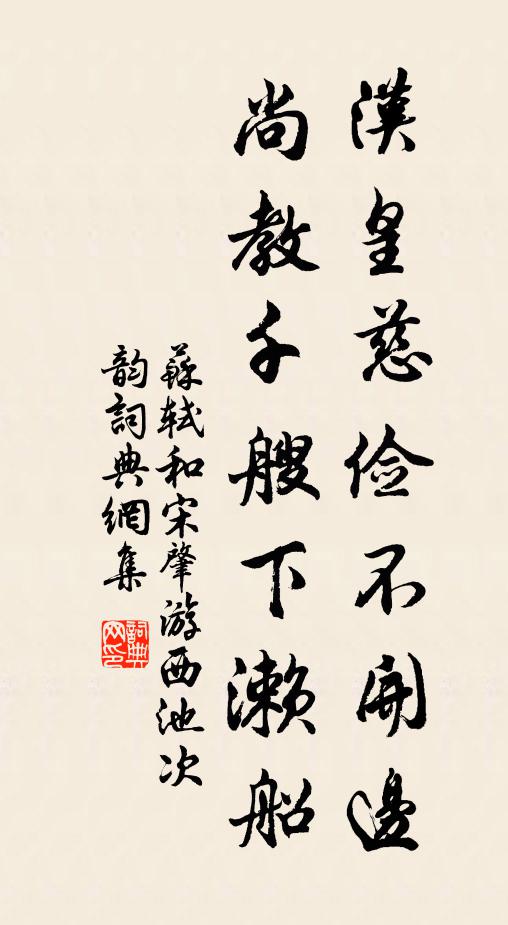 漢皇慈儉不開邊
尚教千艘下瀨船
蘇軾和宋肇游西池次
韵詞典網集
詞典网印